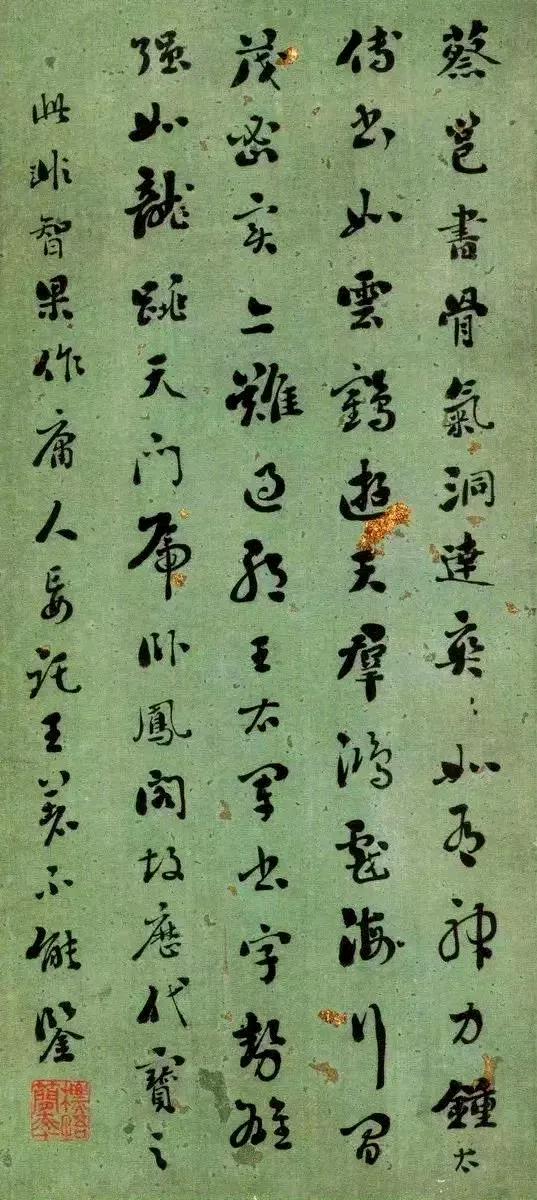 蔡邕書骨氣洞達奕〻如有神力鍾太
傅書如雲鶴遊天羣鴻戲海行間
茂密實亦難過王右軍書字勢雄
强如龍跳天門虎卧鳳閣故歷代寶之
此非智果作庸人妄託王著不能鑒